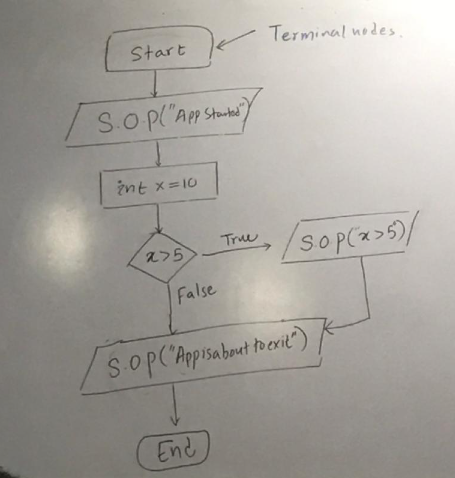 Start
Terminal nodes.
S.O.P("App Started")
int x=10
x>5
True
S.O.P(x>5)
False
S.O.P("App is about to exit")
End